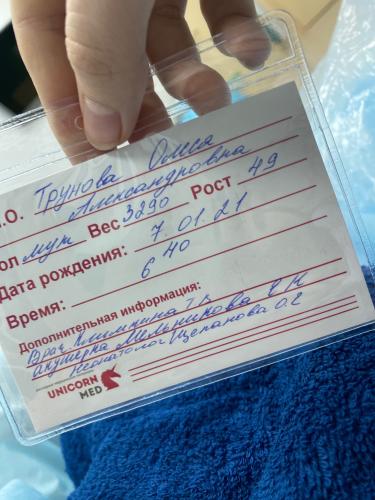 .О. Трунова Олеся
Александровна
ол муж Вес 3290 Рост 49
Дата рождения: 7.01.21
Время: 6 40
Дополнительная информация:
Врач Климкина Т.В
акушерка Мельникова Е К
Неонатолог Щепанова О.Е
UNICORN
MED